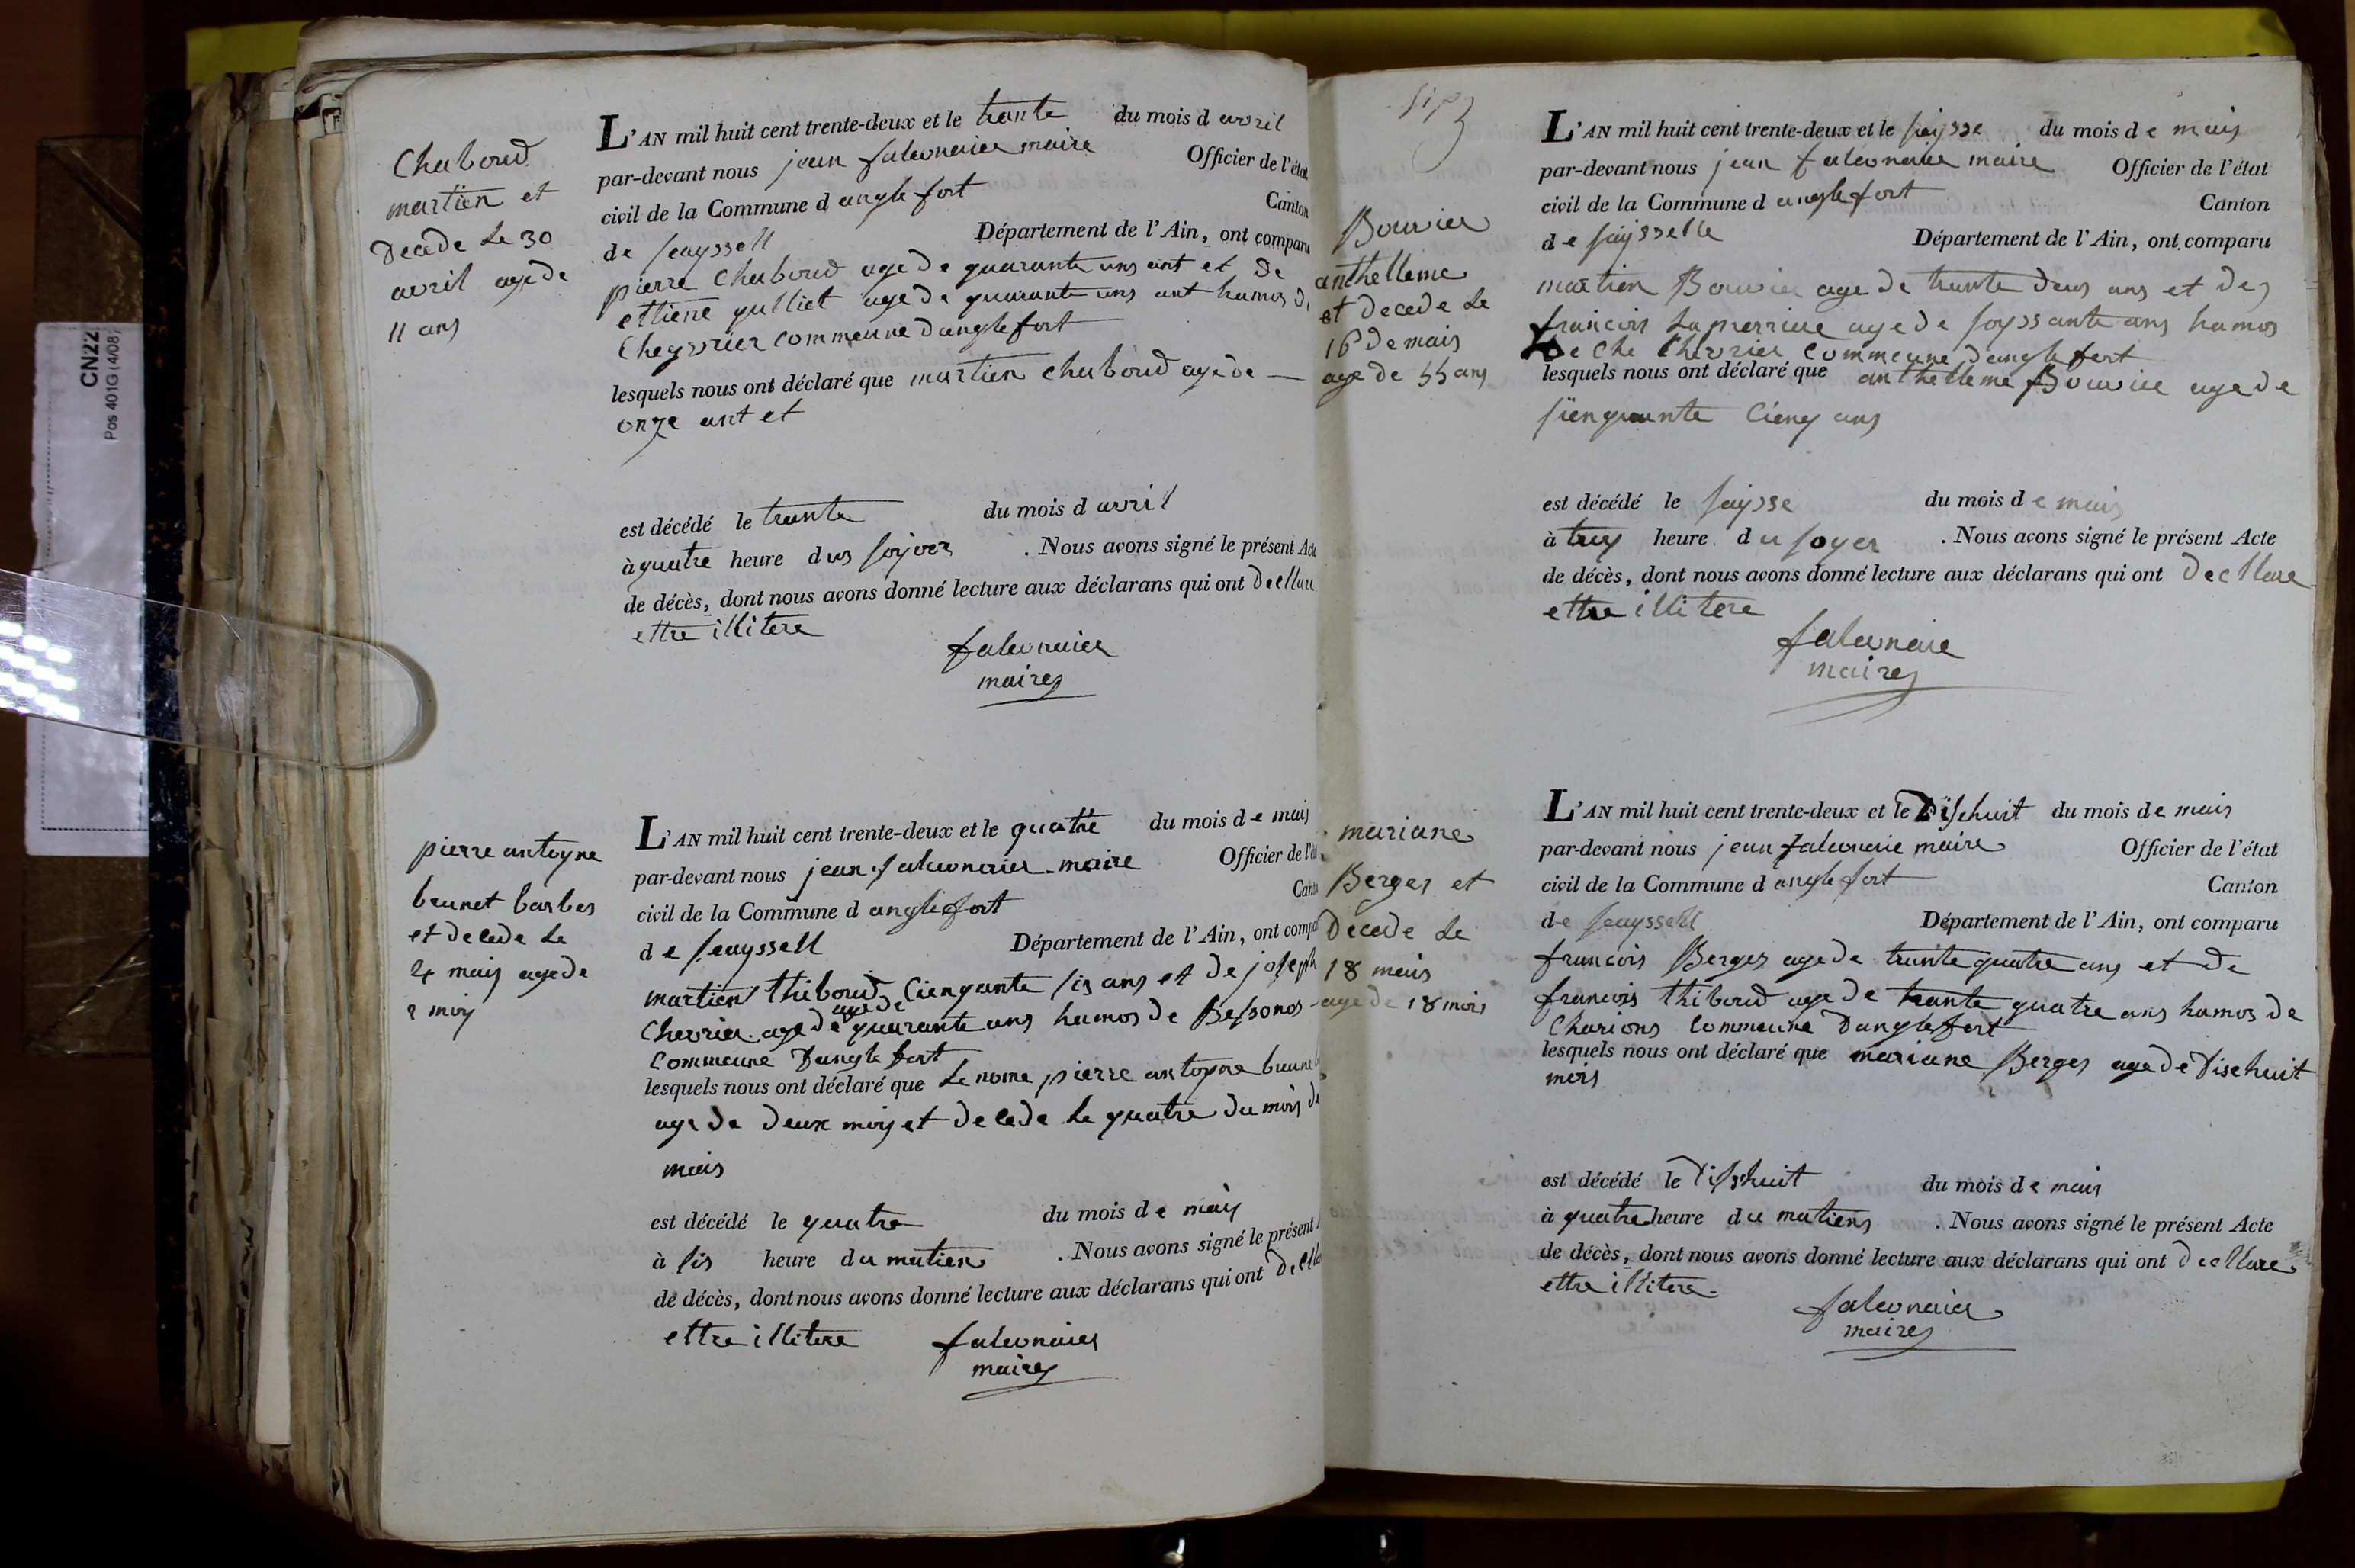 CN22
Pos 401G (4/08)
Chaboud
martien et
Décède Le 30
avril age de
11 ans
L'AN mil huit cent trente-deux et le trante du mois d avril
par-devant nous jean falconnier maire Officier de l'état
civil de la Commune d anglefort Canton
de Seayssell Département de l'Ain, ont comparu
pierre Chaboud age de quarante ans ant et de
ettiene gulliet age de quarante ans ant hamos de
Cheyvrier commeune danglefort
lesquels nous ont déclaré que martien chaboud age de
onze ant et
est décédé le trante du mois d avril
à quatre heure dus soyoer . Nous avons signé le présent Acte
de décès, dont nous avons donné lecture aux déclarans qui ont decllare
ettre illitere
falconaier
maire
pierre antoyne
brunet barbes
et decede Le
4 mais age de
2 mois
L'AN mil huit cent trente-deux et le quatre du mois de mais
par-devant nous jean falconaier maire Officier de l'état
civil de la Commune d anglefort Canton
de Seayssell Département de l'Ain, ont comparu
martien thiboud Cienqante sis ans et de joseph
age de
Chevrier age de quarante ans hamos de Bessonos
Commeune Danglefort
lesquels nous ont déclaré que Le nome pierre antoyne brunet
age de deux mois et decede Le quatre du mois de
mais
est décédé le quatre du mois de mais
à sis heure du matien . Nous avons signé le présent
de décès, dont nous avons donné lecture aux déclarans qui ont decllare
ettre illitere falconaier
maire
Bouvier
anthelleme
et decede Le
16 de mais
age de 55 ans
L'AN mil huit cent trente-deux et le saysse du mois de mais
par-devant nous jean falconaier maire Officier de l'état
civil de la Commune d anglefort Canton
de saysselle Département de l'Ain, ont comparu
martien Bouvier age de trante deus ans et de
francois Laperriere age de soyssante ans hamos
De Che Chevrier commeune danglefort
lesquels nous ont déclaré que anthelleme Bouvier age de
sienquante Cienq ans
est décédé le saysse du mois de mais
à troy heure du soyer . Nous avons signé le présent Acte
de décès, dont nous avons donné lecture aux déclarans qui ont decllare
ettre illitere
falconaie
maire
mariane
Berger et
Décede Le
18 mais
age de 18 mois
L'AN mil huit cent trente-deux et le Dischuit du mois de mais
par-devant nous jean falconaie maire Officier de l'état
civil de la Commune d anglefort Canton
de Seayssell Département de l'Ain, ont comparu
francois Berger age de trante quatre ans et de
francois thiboud age de trante quatre ans hamos de
Charions Commeune Danglefort
lesquels nous ont déclaré que mariane Berger age de Dischuit
mois
est décédé le Disshuit du mois de mais
à quatre heure du matiens . Nous avons signé le présent Acte
de décès, dont nous avons donné lecture aux déclarans qui ont decllare
ettre illitere
falconaier
maire